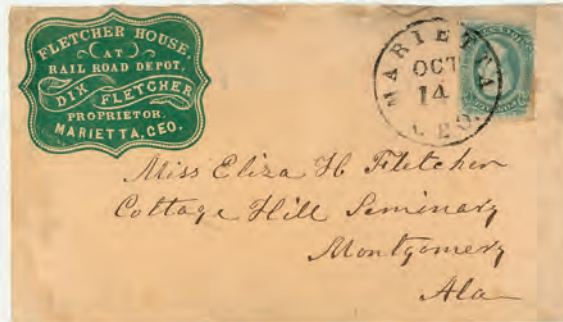 FLETCHER HOUSE,
AT
RAIL ROAD DEPOT,
DIX FLETCHER
PROPRIETOR.
MARIETTA, GEO.
MARIETTA
OCT
14
GEO.
Miss Eliza H Fletcher
Cottage Hill Seminary
Montgomery
Ala